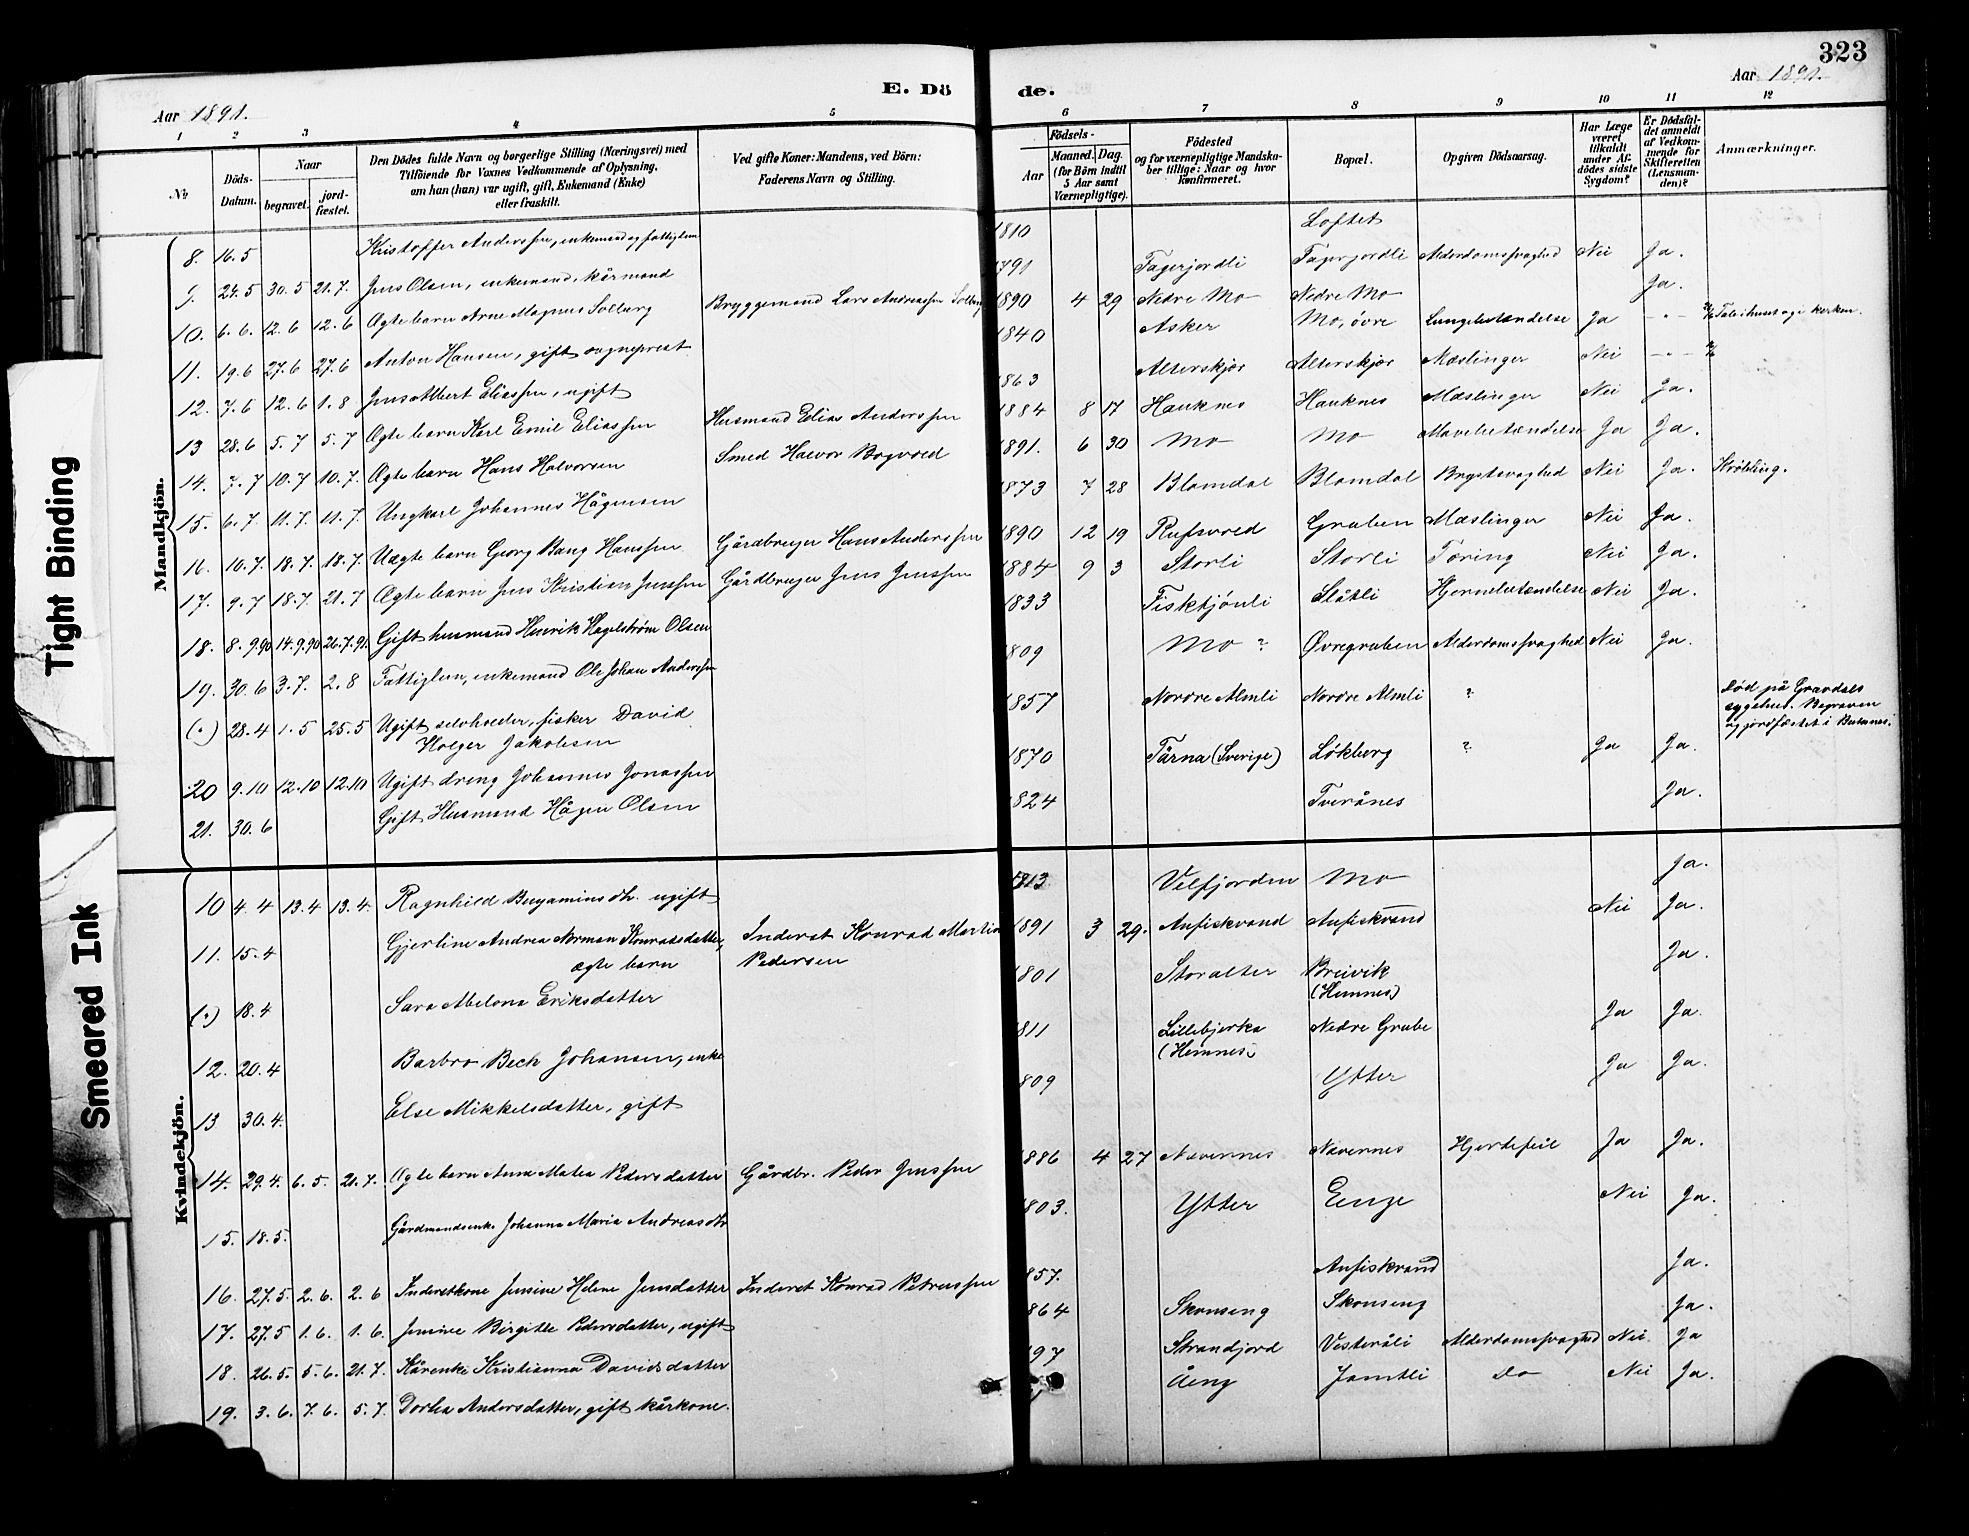 323
E. Dö
de.
Aar 1891.
Aar 1891.
1 2 3 4 5
6 7 8 9 10 11 12
No
Döds-Datum.
Naar
begravet.
jord-fæstet.
Den Dödes fulde Navn og borgerlige Stilling (Næringsvei) med
Tilföiende for Voxnes Vedkommende af Oplysning,
om han (hun) var ugift, gift, Enkemand (Enke)
eller fraskilt.
Ved gifte Koner: Mandens, ved Börn:
Faderens Navn og Stilling.
Födsels-
Aar
Maaned. Dag.
(for Børn indtil
5 Aar samt
Værnepligtige).
Födested
og for værnepligtige Mandska-
ber tillige: Naar og hvor
konfirmeret.
Bopæl.
Opgiven Dödsaarsag.
Har Læge
været
tilkaldt
under Af-
dödes sidste
Sygdom?
Er Dödsfal-
det anmeldt
af Vedkom-
mende for
Skifteretten
(Lensman-
den)?
Anmærkninger.
Mandkjön.
8. 16.5 Kristoffer Anderssen, enkemand og fattiglem 1810 Loftet
9. 24.5 30.5 21.7. Jens Olsen, enkemand, kårmand 1791 Fagerjordli Fagerjordli Alderdomssvaghed Nei Ja.
10. 6.6. 12.6 12.6 Ægte barn Arne Magnus Solberg Bryggemand Lars Andreassen Solberg 1890 4 29 Nedre Mo Nedre Mo Ja.
11. 19.6 27.6 27.6 Anton Hansen, gift sogneprest 1840 Asker Mo, øvre Lungebetændelse Ja -"- Tale i huset og i kirken.
12. 7.6 12.6 1.8 Jens Albert Eliassen, ugift 1863 Alterskjær Alterskjær Mæslinger Nei -"-
13 28.6 5.7 5.7 Ægte barn Karl Emil Eliassen Husmand Elias Anderssen 1884 8 17 Hauknes Hauknes Mæslinger Nei Ja.
14. 7.7 10.7 10.7. Ægte barn Hans Halvorsen Smed Halvor Bogvold 1891. 6 30 Mo Mo Mavebetændelse Ja Ja.
15. 6.7. 11.7. 11.7. Ungkarl Johannes Hågensen 1873 7 28 Blamdal Blamdal Brystsvaghed Nei Ja. Krøbling.
16. 10.7. 18.7. 18.7. Uægte barn Georg Bang Hanssen Gårdbruger Hans Anderssen 1890 12 19 Rufsvold Gruben Mæslinger Nei Ja.
17. 9.7 18.7. 21.7 Ægte barn Jens Kristian Jenssen Gårdbruger Jens Jenssen 1884 9 3 Storli Storli Tæring Nei Ja.
18. 8.9.90 14.9.90 26.7.91. Gift husmand Henrik Hagelstrøm Olsen 1833 Fisktjönli Slåtli Hjernebetændelse Nei Ja.
19. 30.6 3.7. 2.8 Fattiglem, enkemand Ole Johan Anderssen 1809 Mo ? Øvregruben Alderdomssvaghed Nei Ja.
(") 28.4 1.5 25.5 Ugift selveier, fisker David
Holger Jakobsen 1857 Nordre Almli Nordre Almli ? Död på Gravdals
sygehus. Begraven
og jordfæstet i Buksnes.
20 9.10 12.10 12.10 Ugift dreng Johannes Jonassen 1870 Tärna (Sverige) Lökberg ? Ja Ja.
21. 30.6 Gift Husmand Hågen Olsen 1824 Tverånes Ja.
Kvindekjön.
10 4.4 13.4 13.4. Ragnhild Benjaminsdtr. ugift 1813. Velfjorden Mo Ja.
11. 15.4 Gjertine Andrea Norman Konradsdatter,
ægte barn Inderst Konrad Martin
Pedersen 1891 3 29. Anfiskvand Anfiskvand Nei Ja.
(") 18.4 Sara Abelona Eriksdatter 1801 Storalter Breivik
(Hemnes) Ja.
12. 20.4 Barbro Bech Johansen, enke 1811 Lillebjerka
(Hemnes) Nedre Grube Ja Ja.
13 30.4. Else Mikkelsdatter, gift 1809 Ytter Ja Ja.
14. 29.4. 6.5. 21.7. Ægte barn Anne Matea Pedersdatter Gårdbr. Peder Jenssen 1886 4 27 Navernes Navernes Hjertefeil Ja Ja.
15. 18.5. Gårdmandsenke Johanna Maria Andreasdtr 1803. Ytter Enge Nei Ja.
16. 27.5. 2.6. 2.6 Inderstkone Jensine Helene Jensdatter Inderst Konrad Petersen 1857. Anfiskvand Ja.
17. 27.5 1.6. 1.6. Jensine Birgitte Pedersdatter, ugift 1864 Skonseng Skonseng Ja.
18. 26.5. 5.6. 21.7. Kårenke Kristianna Davidsdatter 97 Strandjord Vesteråli Alderdomssvaghed Nei Ja
19. 3.6. 7.6. 5.7. Dorthea Andersdatter, gift kårkone. Aeng Jamtli Do Nei Ja.
Tight Binding
Smeared Ink